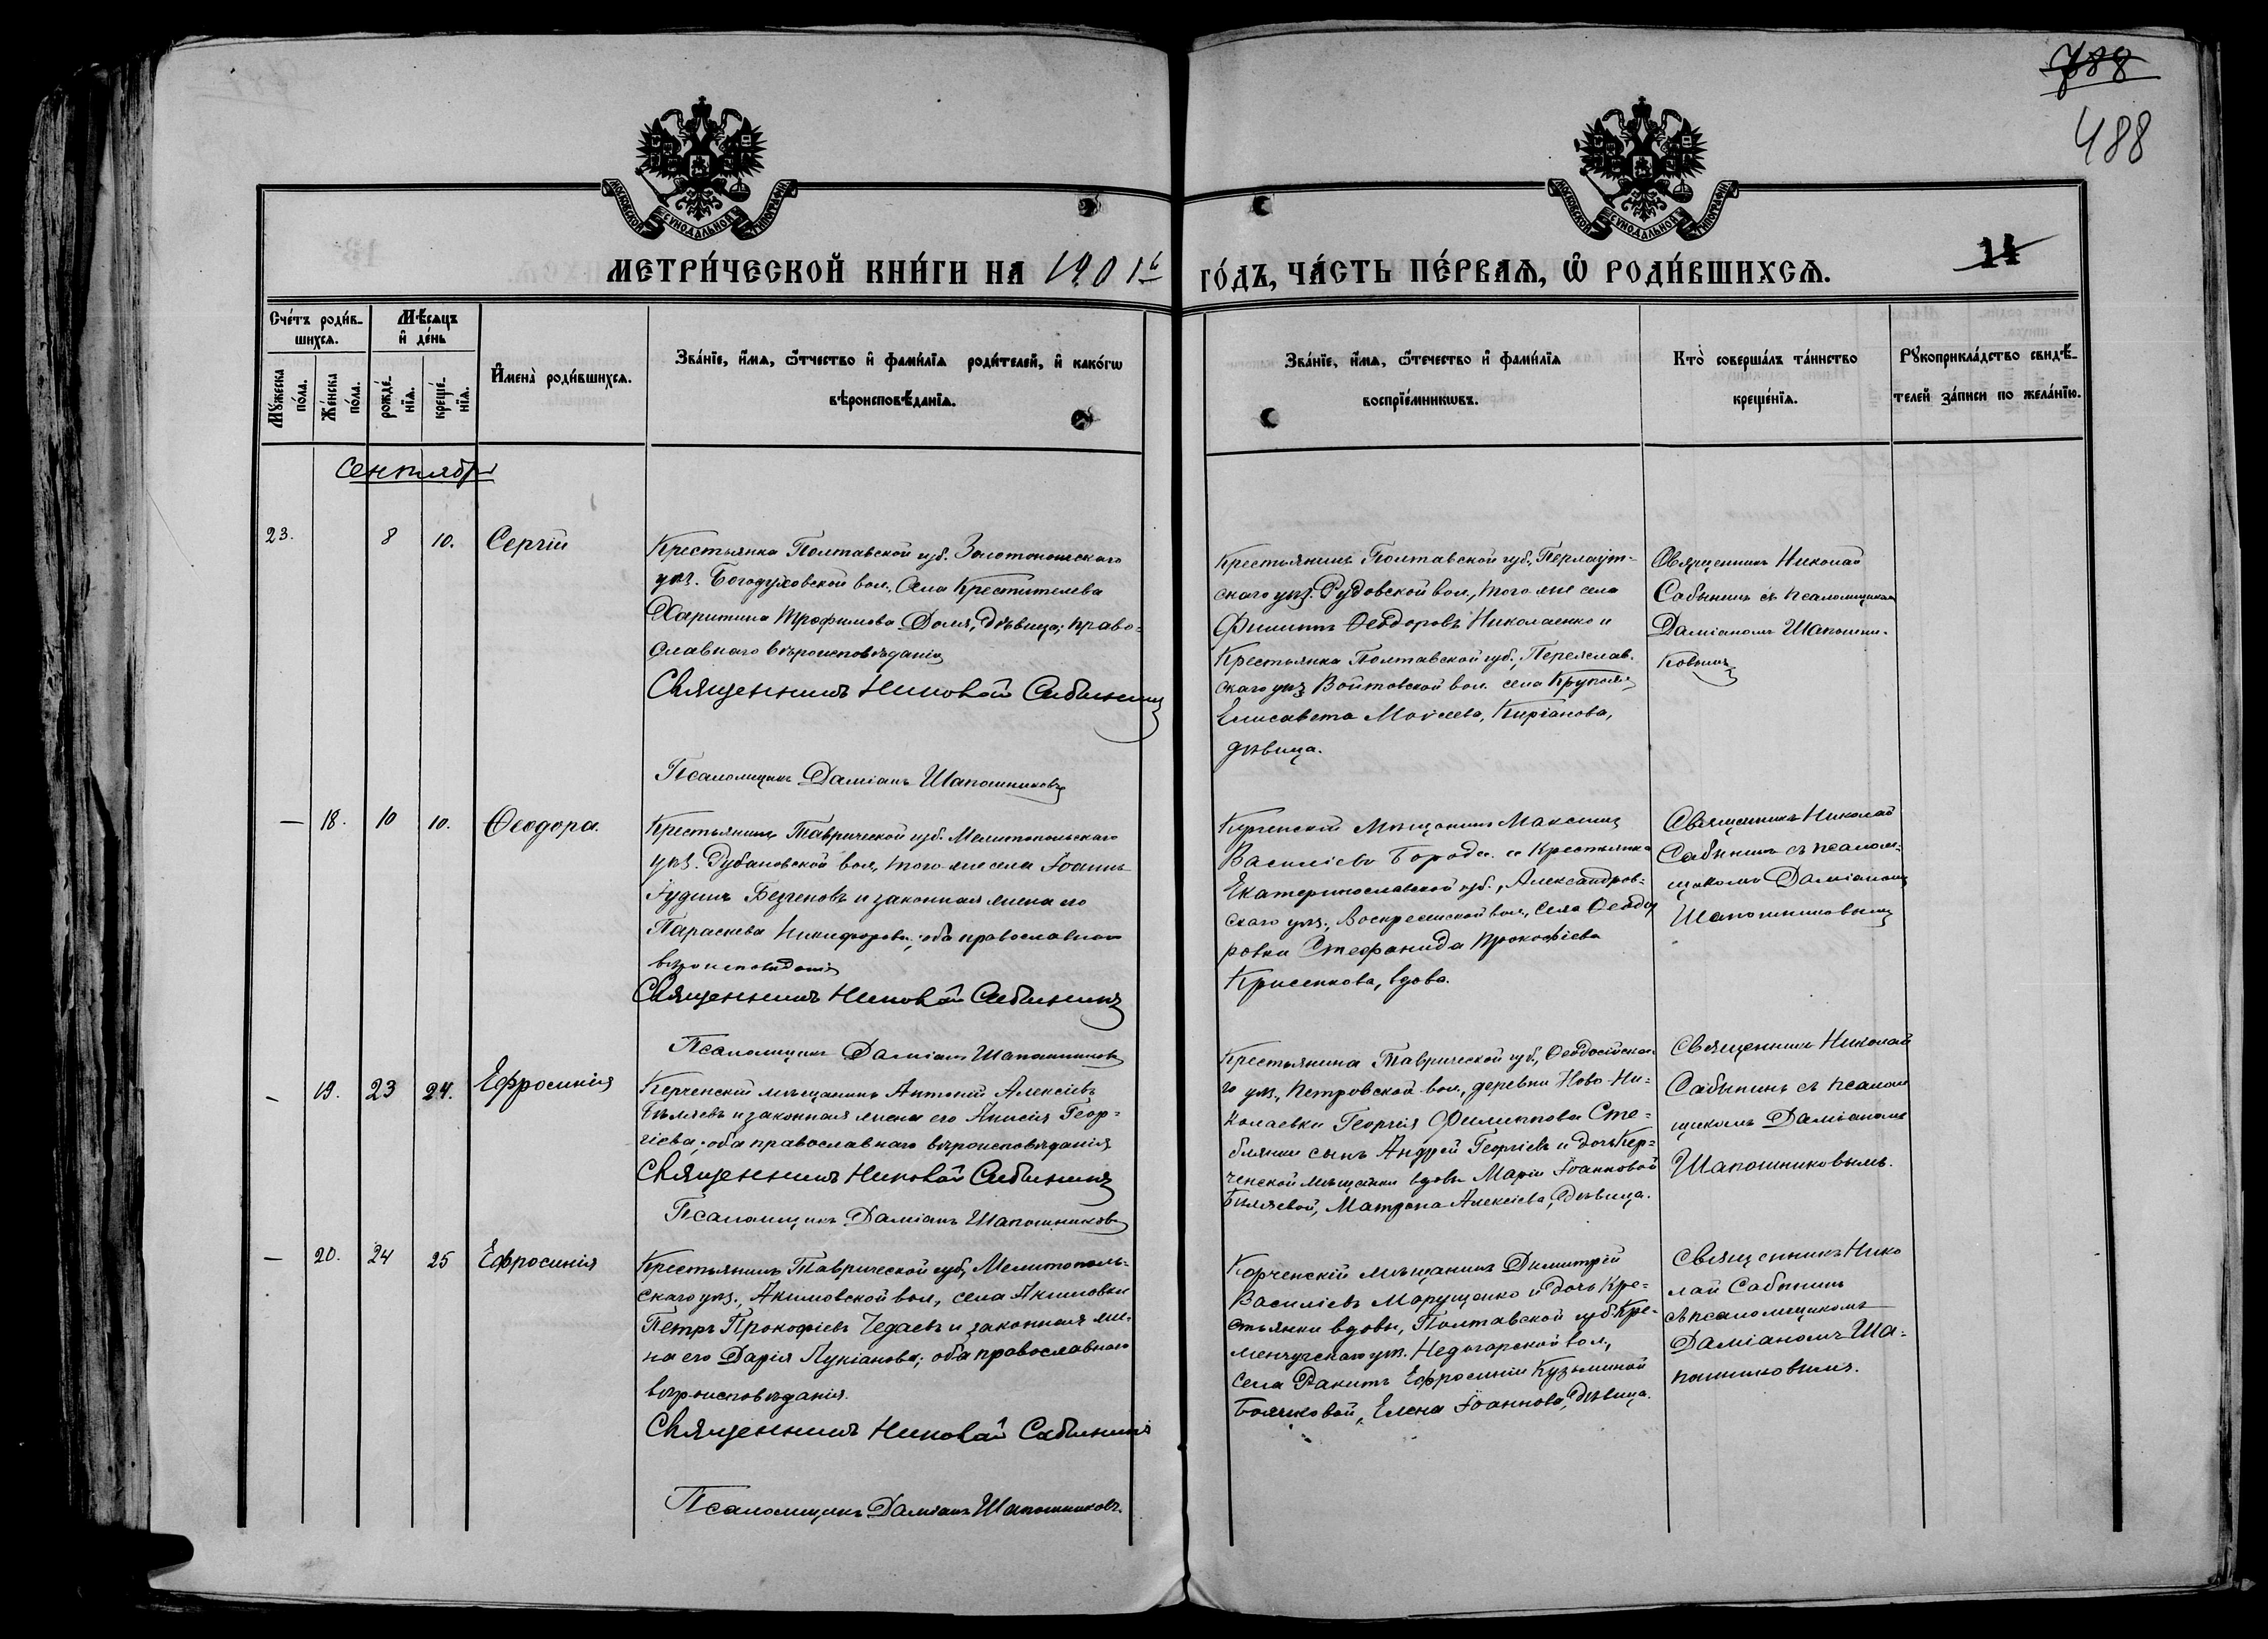 788
488
МОСКОВСКОЙ СѴНОДАЛЬНОЙ ТИПОГРАФІИ
МОСКОВСКОЙ СѴНОДАЛЬНОЙ ТИПОГРАФІИ
МЕТРИ́ЧЕСКОЙ КНИ́ГИ НА 1901й
ГО́ДЪ, ЧА́СТЬ ПЕ́РВАѦ, Ѽ РОДИ́ВШИХСѦ.
14
Сче́тъ роди́в-
шихсѧ.
Мꙋ́жеска по́ла.
Же́нска по́ла.
Мѣ́сѧцъ
и҆ де́нь
рожде́-
нїѧ.
креще́-
нїѧ.
И҆мена̀ роди́вшихсѧ.
Зва́нїе, и҆́мѧ, ѻ҆́тчество и҆ фами́лїѧ роди́телей, и҆ како́гѡ
вѣроисповѣ́данїѧ.
Зва́нїе, и҆́мѧ, ѻ҆́течество и҆ фами́лїѧ
воспрїе́мникѡвъ.
Кто̀ соверша́лъ та́инство
креще́нїѧ.
Рꙋкоприкла́дство свидѣ́-
телей за́писи по жела́нїю.
Сентябрь
23.
8
10.
Сергiй
Крестьянка Полтавской губ. Золотоношскаго
уѣз. Богодуховской вол., села Крестителева
Харитина Трофимова Доля, дѣвица; право-
славнаго вѣроисповѣданія
Священникъ Николай Сабининъ
Псаломщикъ Даміанъ Шапошниковъ
Крестьянинъ Полтавской губ.,
скаго уѣз. Рудовской вол., того же села
Филиппъ Ѳеодоровъ Николаенко и
Крестьянка Полтавской губ., Переяслав-
скаго уѣз. Войтовской вол. села
Елисавета Моисеева,
дѣвица.
Священникъ Николай
Сабининъ съ псаломщикомъ
Даміаномъ Шапошни-
ковымъ
—
18.
10
10.
Ѳеодора.
Крестьянинъ Таврической губ. Мелитопольскаго
уѣз. Рубановской вол., того же села Іоаннъ
Іудинъ и законная жена его
Параскева Никифорова; оба православнаго
вѣроисповѣданія
Священникъ Николай Сабининъ
Псаломщикъ Даміанъ Шапошниковъ
Керченскій мѣщанинъ Максимъ
Василіевъ Борода и крестьянка
Екатеринославской губ., Александров-
скаго уѣз., Воскресенской вол., села Ѳеодо
ровки Стефанида Прокофіева
Крисенкова, вдова.
Священникъ Николай
Сабининъ съ псалом-
щикомъ Даміаномъ
Шапошниковымъ
-
19.
23
24.
Ефросинія
Керченскій мѣщанинъ Антоній Алексіевъ
Бѣляевъ и законная жена его Анисія Геор-
гіева; оба православнаго вѣроисповѣданія
Священникъ Николай Сабининъ
Псаломщикъ Даміанъ Шапошниковъ
Крестьянина Таврической губ., Ѳеодосійска-
го уѣз., Петровской вол., деревни Ново-Ни-
колаевки Георгія Филиппова Сте-
блянки сынъ Андрей Георгіевъ и дочь Кер-
ченской мѣщанки вдовы Маріи Іоанновой
Бѣляевой, Матрона Алексіева, дѣвица.
Священникъ Николай
Сабининъ съ псалом
щикомъ Даміаномъ
Шапошниковымъ.
—
20.
24
25
Ефросинія
Крестьянинъ Таврической губ., Мелитополь-
скаго уѣз., Акимовской вол., села Акимовки
Петръ Прокофіевъ Чедаевъ и законная же-
на его Дарія Лукіанова; оба православнаго
вѣроисповѣданія.
Священникъ Николай Сабининъ
Псаломщикъ Даміанъ Шапошниковъ.
Керченскій мѣщанинъ Димитрій
Василіевъ Марущенко и дочь Кре-
стьянки вдовы, Полтавской губ. Кре-
менчугскаго уѣз. Недогарской вол.,
села Ракитъ Ефросиніи Кузьминой
Елена Іоаннова, дѣвица.
Священникъ Нико
лай Сабининъ
съ псаломщикомъ
Даміаномъ Ша-
пошниковымъ.